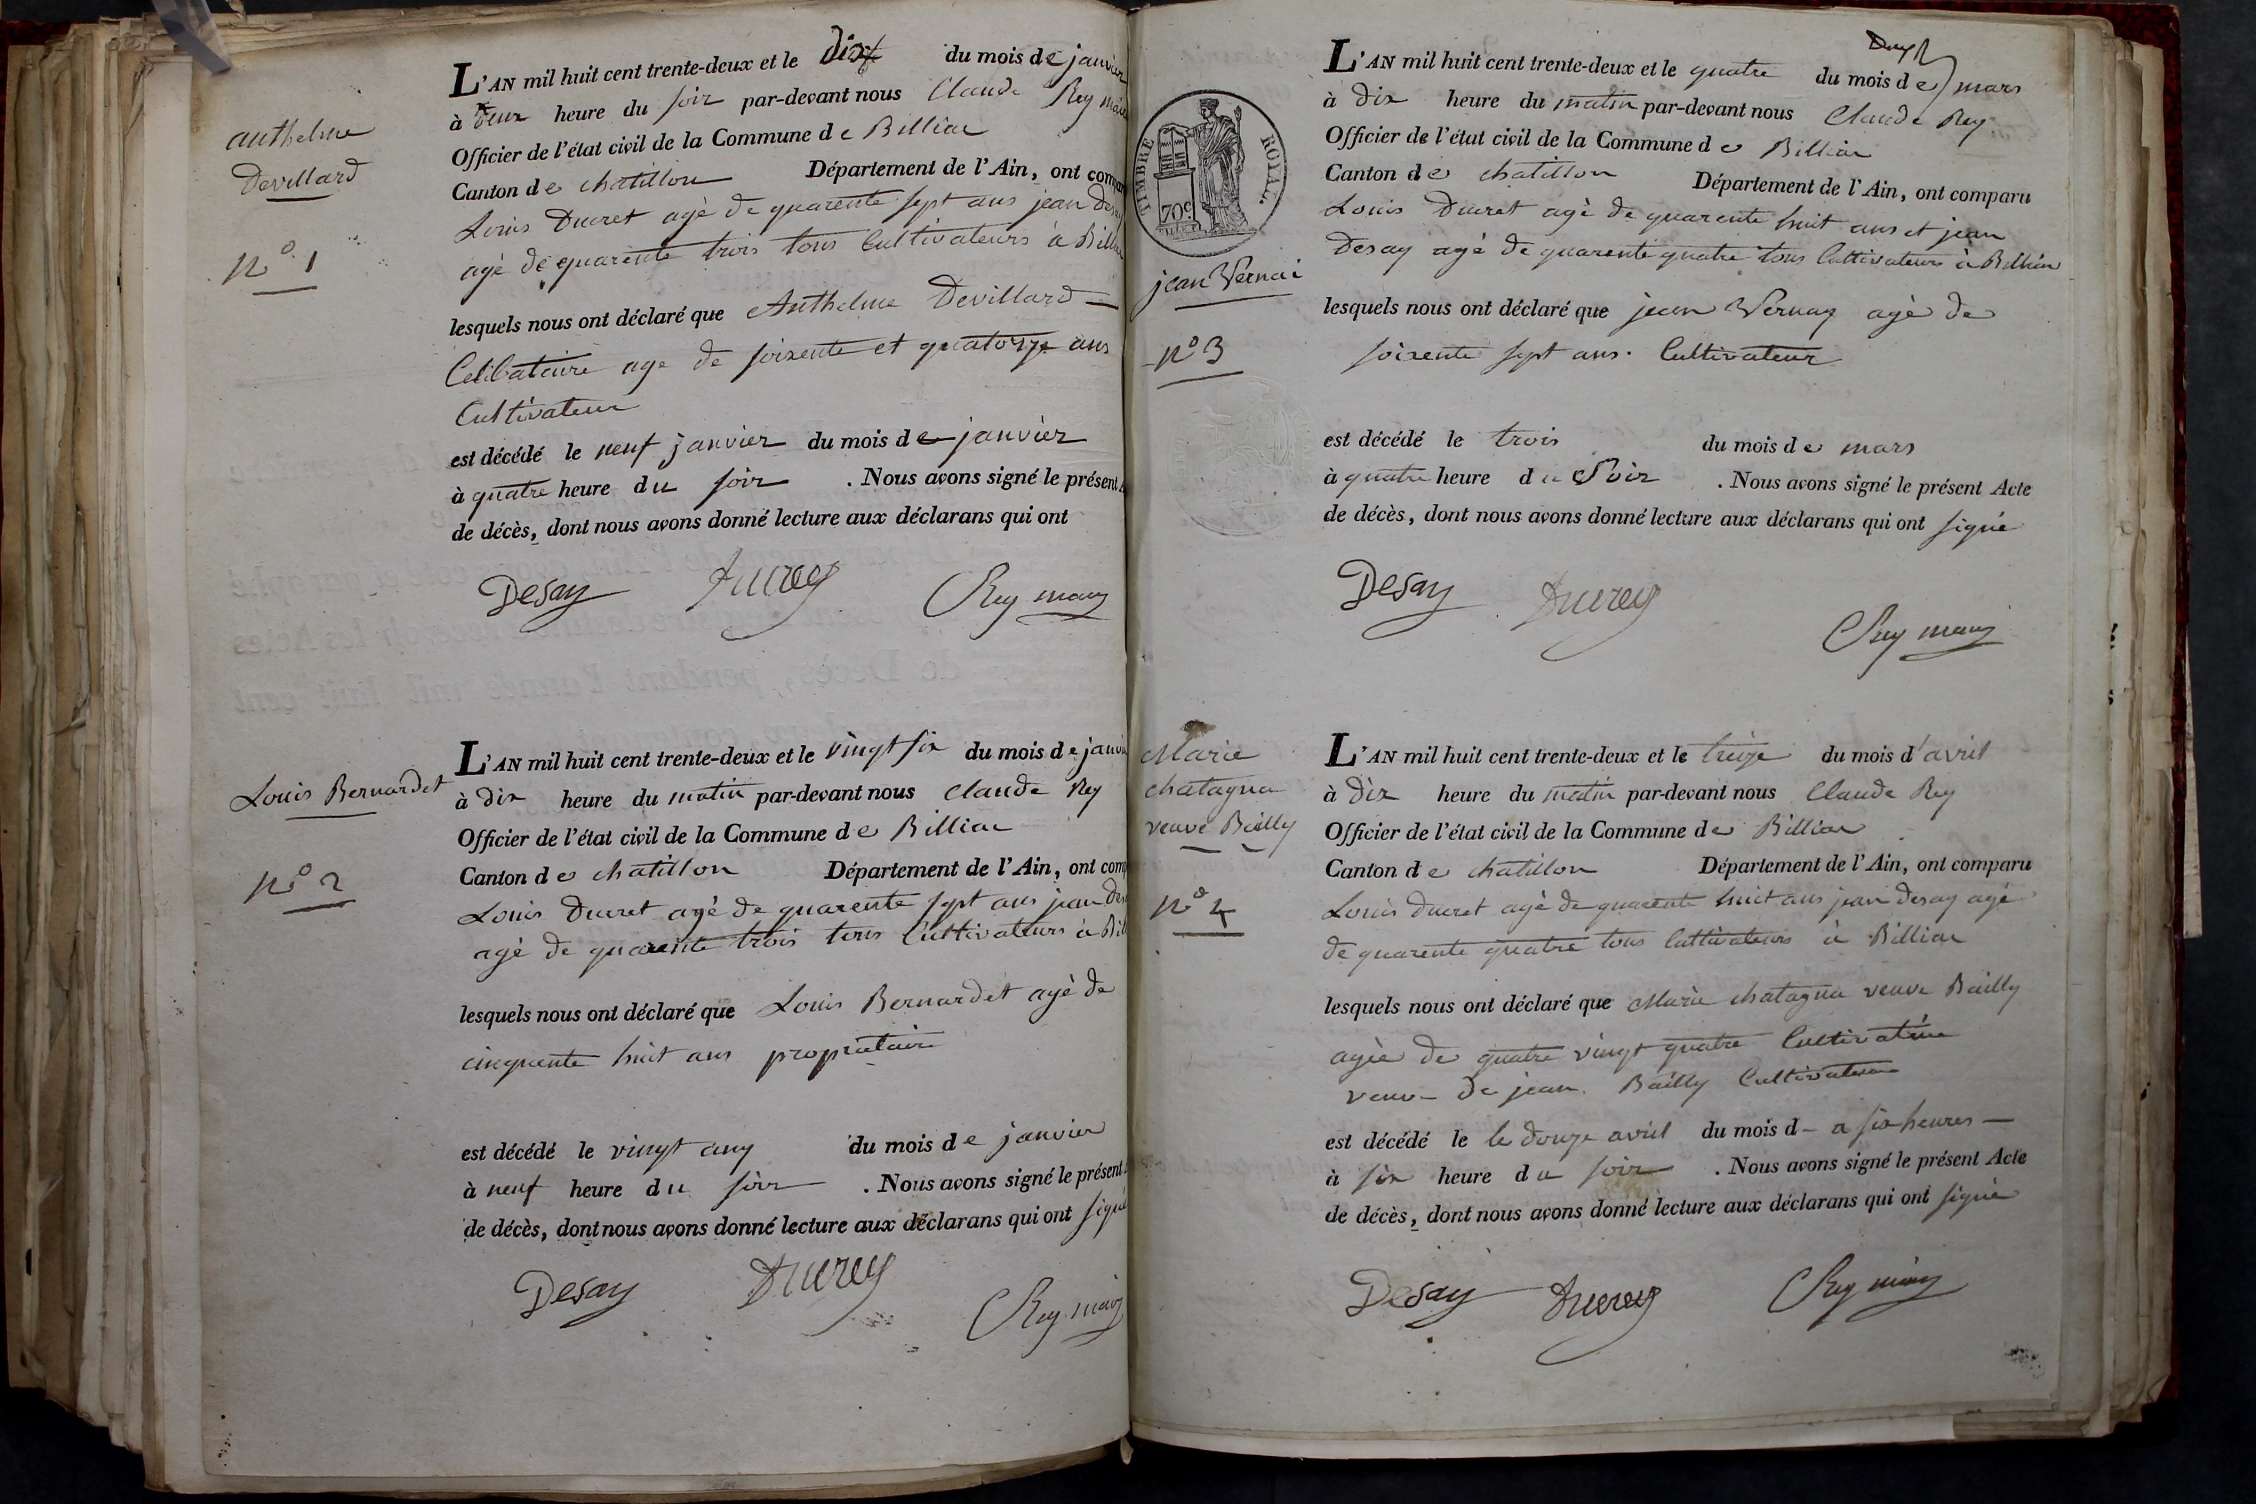 anthelme
Devillard
N° 1
L'AN mil huit cent trente-deux et le dix du mois de janvier
à deux heure du soir par-devant nous Claude Rey maire
Officier de l'état civil de la Commune de Billiac
Canton de chatillon Département de l'Ain, ont
Louis Ducret agé de quarente sept ans jean
agé de quarente trois tous Cultivateurs à
lesquels nous ont déclaré que Anthelme Devillard
Celibataire age de soixente et quatorze ans
Cultivateur
est décédé le neuf janvier du mois de janvier
à quatre heure du soir . Nous avons signé le présent
de décès, dont nous avons donné lecture aux déclarans qui ont
Desay Ducrey Rey maire
Louis Bernardet
N° 2
L'AN mil huit cent trente-deux et le vingt six du mois de
à dix heure du matin par-devant nous Claude Rey
Officier de l'état civil de la Commune de Billiac
Canton de chatillon Département de l'Ain, ont
Louis Ducret agé de quarente sept ans jean
agé de quarente trois tous Cultivateurs à
lesquels nous ont déclaré que Louis Bernardet agé de
cinquente huit ans propriétaire
est décédé le vingt du mois de janvier
à neuf heure du soir . Nous avons signé le présent
de décès, dont nous avons donné lecture aux déclarans qui ont signé
Desay Ducrey Rey maire
TIMBRE ROYAL
70c
jean Vernai
N° 3
L'AN mil huit cent trente-deux et le quatre du mois de mars
à Dix heure du matin par-devant nous Claude Rey
Officier de l'état civil de la Commune de Billiac
Canton de chatillon Département de l'Ain, ont comparu
Louis Ducret agé de quarente huit ans et jean
Desay agé de quarente quatre tous Cultivateurs à Billiac
lesquels nous ont déclaré que jean Vernay agé de
soixente sept ans. Cultivateur
est décédé le trois du mois de mars
à quatre heure du Soir . Nous avons signé le présent Acte
de décès, dont nous avons donné lecture aux déclarans qui ont signé
Desay Ducrey Rey maire
Marie
chatagna
veuve Bailly
N° 4
L'AN mil huit cent trente-deux et le treize du mois d'avril
à dix heure du matin par-devant nous Claude Rey
Officier de l'état civil de la Commune de Billiac
Canton de chatillon Département de l'Ain, ont comparu
Louis Ducret agé de quarente huit ans jean Desay agé
de quarente quatre tous Cultivateurs à Billiac
lesquels nous ont déclaré que Marie chatagna veuve Bailly
agée de quatre vingt quatre Cultivatrice
veuve de jean Bailly Cultivateur
est décédé le le douze avril du mois d - a six heures -
à six heure du soir . Nous avons signé le présent Acte
de décès, dont nous avons donné lecture aux déclarans qui ont signé
Desay Ducrey Rey maire